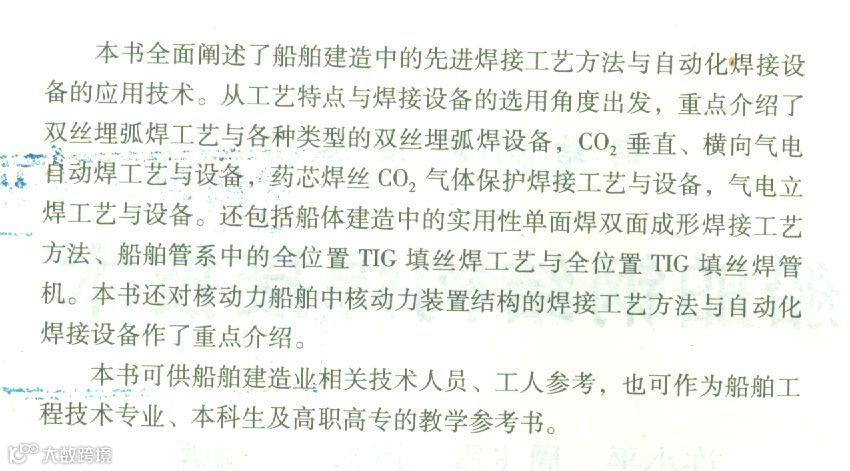 本书全面阐述了船舶建造中的先进焊接工艺方法与自动化焊接设
备的应用技术。从工艺特点与焊接设备的选用角度出发，重点介绍了
双丝埋弧焊工艺与各种类型的双丝埋弧焊设备，CO₂ 垂直、横向气电
自动焊工艺与设备，药芯焊丝 CO₂ 气体保护焊接工艺与设备，气电立
焊工艺与设备。还包括船体建造中的实用性单面焊双面成形焊接工艺
方法、船舶管系中的全位置 TIG 填丝焊工艺与全位置 TIG 填丝焊管
机。本书还对核动力船舶中核动力装置结构的焊接工艺方法与自动化
焊接设备作了重点介绍。
本书可供船舶建造业相关技术人员、工人参考，也可作为船舶工
程技术专业、本科生及高职高专的教学参考书。
大数跨境